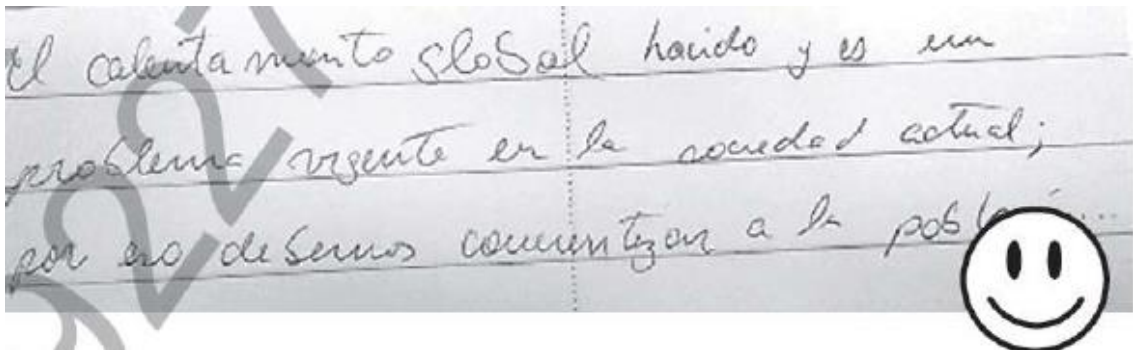 El calentamiento global ha sido y es un
problema vigente en la sociedad actual;
por eso debemos concientizar a la